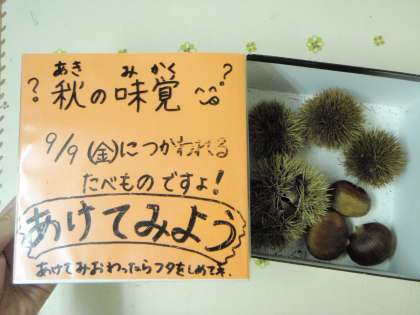 あき みかく
?秋の味覚?
9/9㊎につかわれる
たべものですよ!
あけてみよう
あけてみおわったらフタをしめてネ